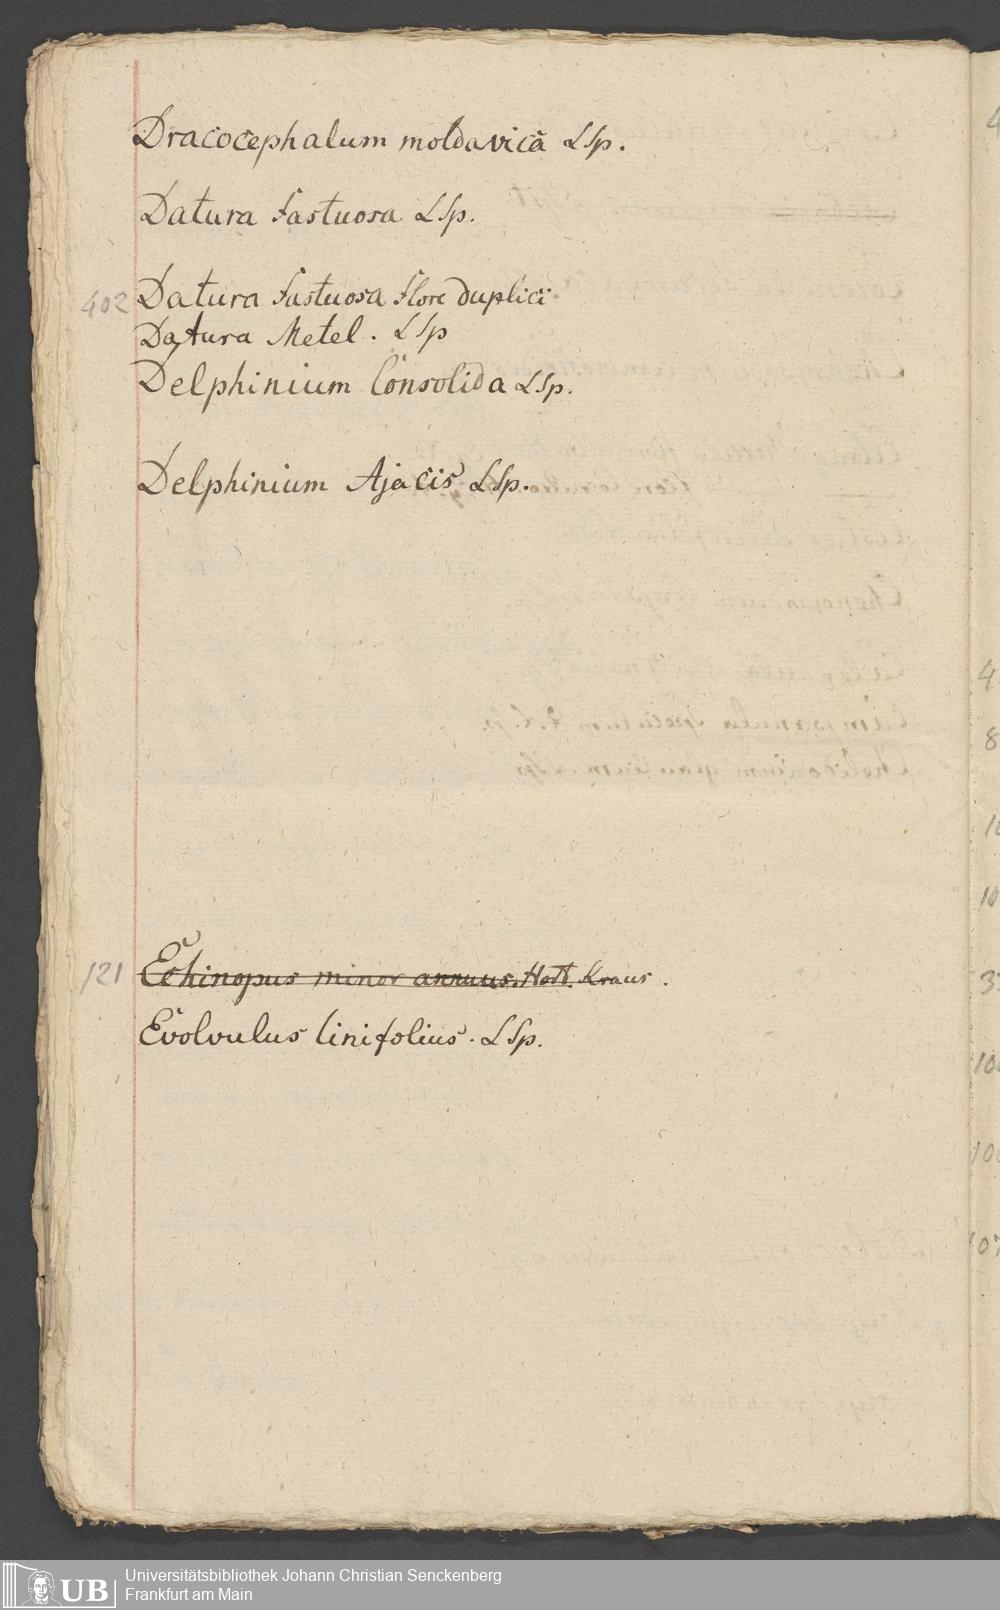 Dracocephalum moldavica LSp.
Datura fastuosa LSp.
402 Datura fastuosa flore duplici
Datura Metel. LSp
Delphinium Consolida LSp.
Delphinium Ajacis LSp.
121 Echinopus minor annuus. Hort. Kraus.
Evolvulus linifolius. LSp.
UB Universitätsbibliothek Johann Christian Senckenberg
Frankfurt am Main